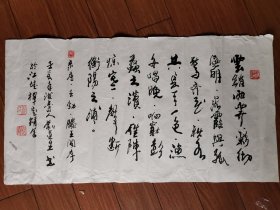 雲銷雨霽彩徹
區明落霞與孤
鶩齊飛秋水
共長天一色漁
舟唱晚響窮彭
蠡之濱雁陣
惊寒聲斷
衡陽之浦
唐王勃滕王阁序